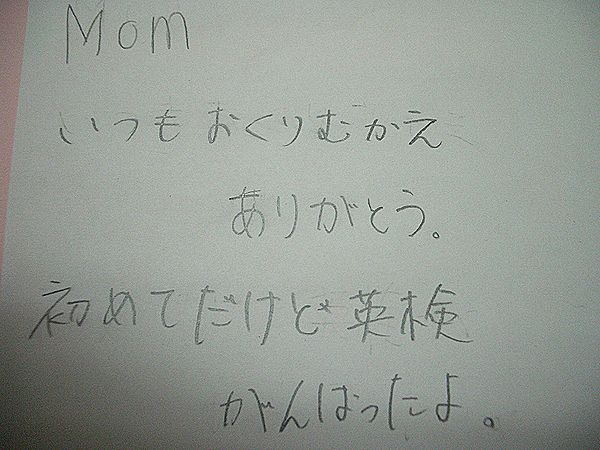 Mom
いつもおくりむかえ
ありがとう。
初めてだけど英検
がんばったよ。